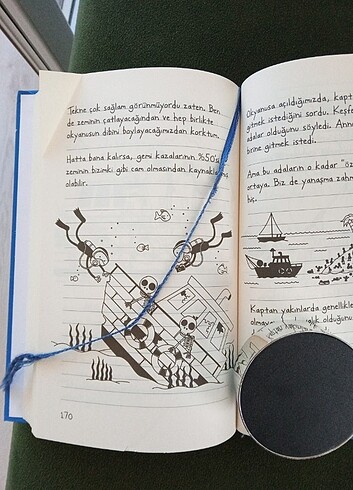 Tekne çok sağlam görünmüyordu zaten. Ben
de zeminin çatlayacağından ve hep birlikte
okyanusun dibini boylayacağımızdan korktum.
Hatta bana kalırsa, gemi kazalarının %50'si
zeminin bizimki gibi cam olmasından
olabilir.
170
Okyanusa açıldığımızda,
gitmek istediğini sordu.
adalar olduğunu söyledi.
birine gitmek istedi.
Ama bu adaların o kadar
ortaya. Biz de yanaşma
Kaptan yakınlarda
olduğunu